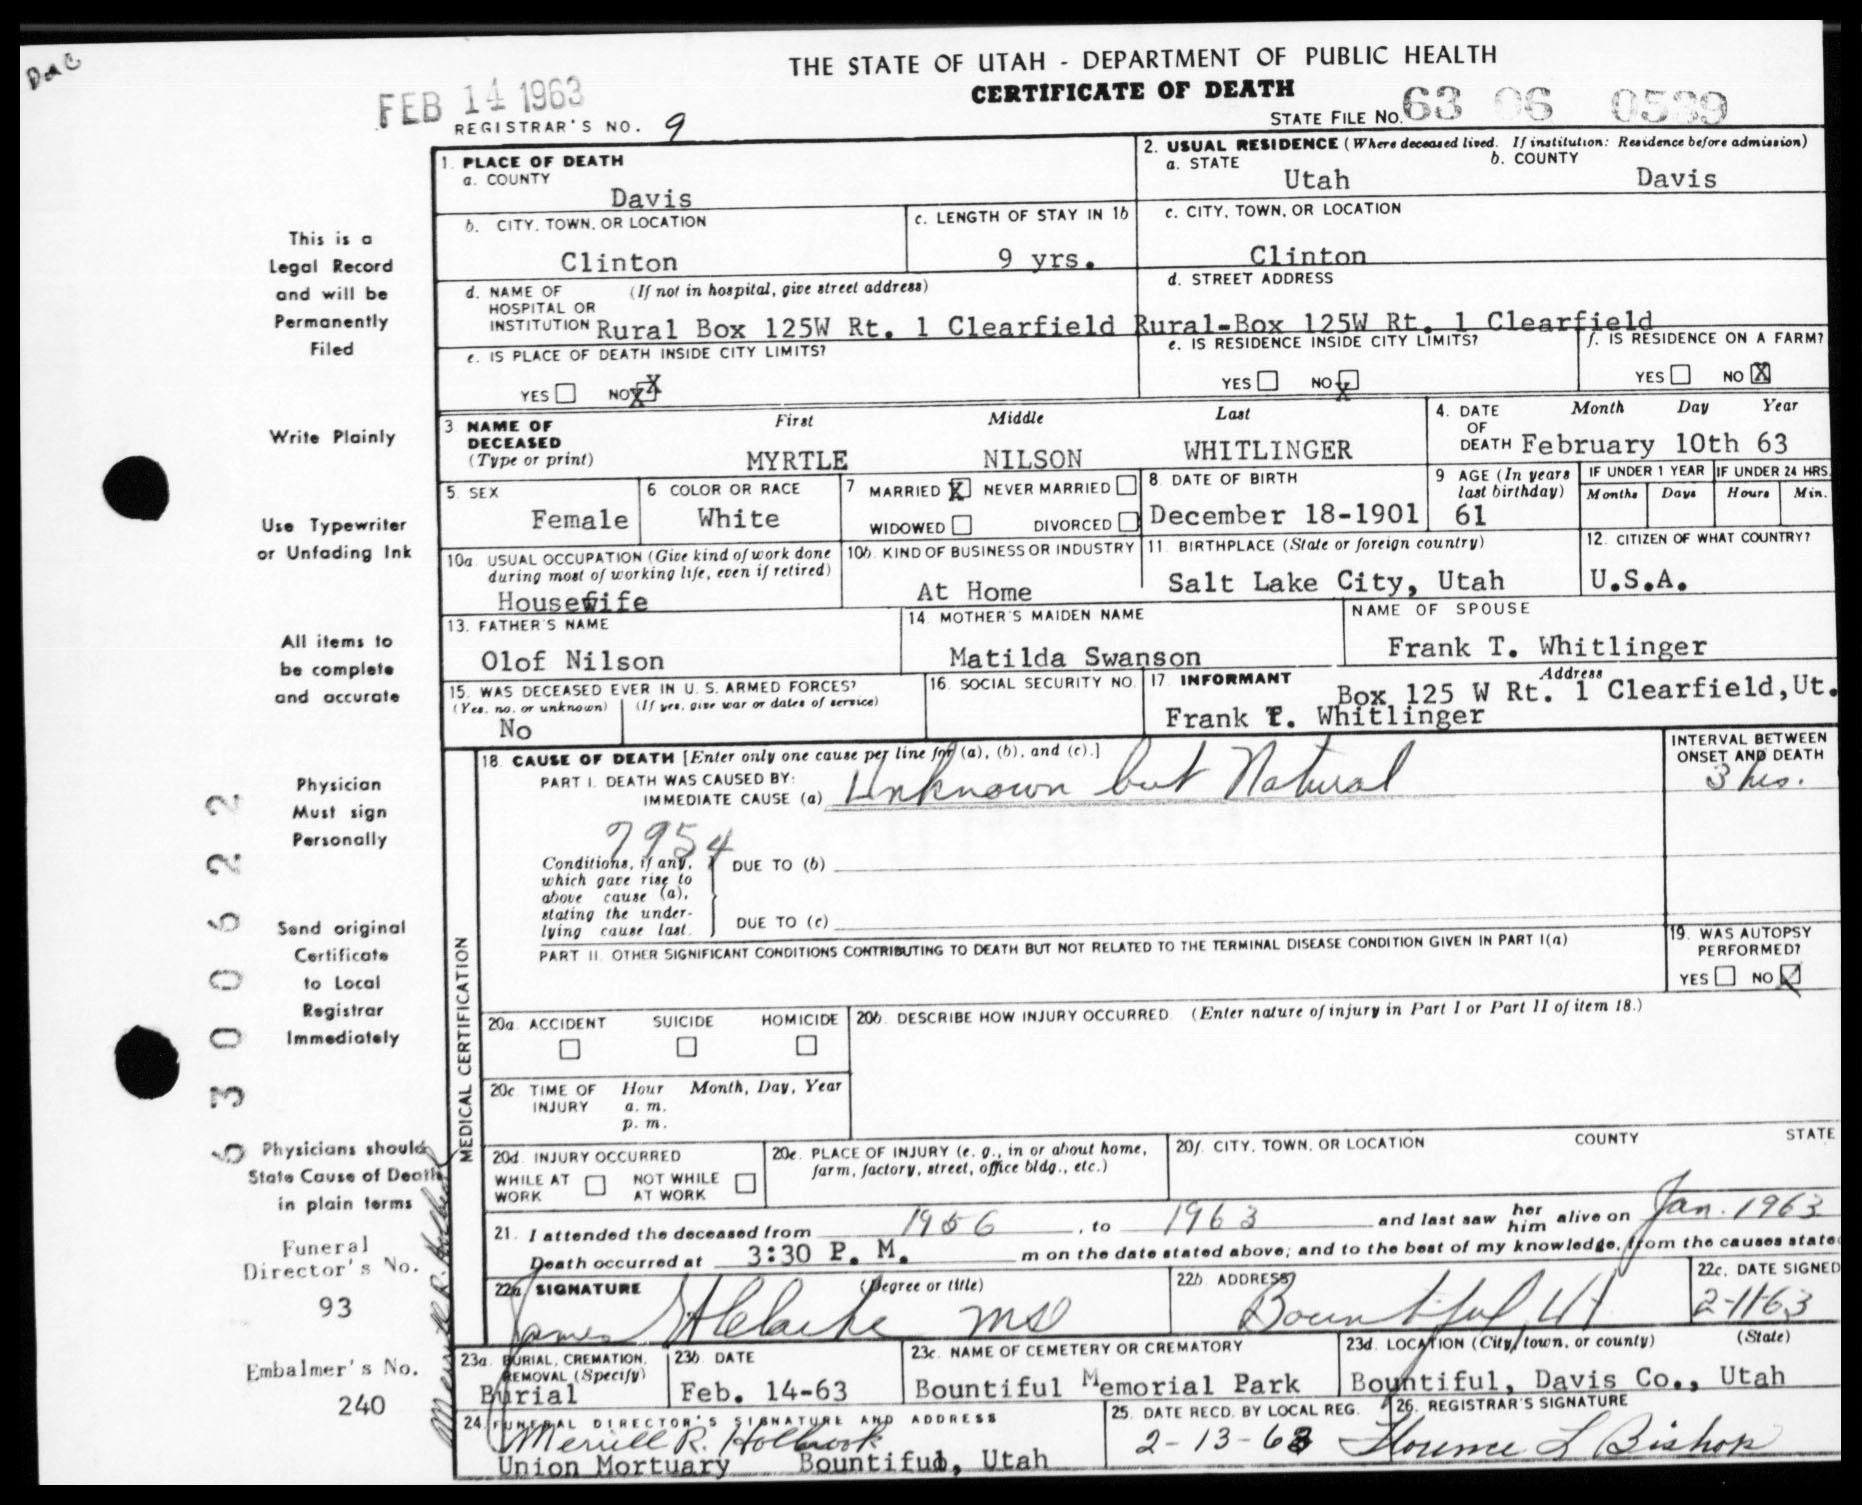 DaC
THE STATE OF UTAH - DEPARTMENT OF PUBLIC HEALTH
CERTIFICATE OF DEATH
FEB 14 1963
REGISTRAR'S NO. 9
STATE FILE NO. 63 06 0539
1. PLACE OF DEATH
a. COUNTY
Davis
2. USUAL RESIDENCE (Where deceased lived. If institution: Residence before admission)
a. STATE b. COUNTY
Utah Davis
b. CITY, TOWN, OR LOCATION
Clinton
c. LENGTH OF STAY IN 1b
9 yrs.
c. CITY, TOWN, OR LOCATION
Clinton
d. NAME OF (If not in hospital, give street address)
HOSPITAL OR
INSTITUTION Rural Box 125W Rt. 1 Clearfield
d. STREET ADDRESS
Rural-Box 125W Rt. 1 Clearfield
e. IS PLACE OF DEATH INSIDE CITY LIMITS?
YES NO X X
e. IS RESIDENCE INSIDE CITY LIMITS?
YES NO X
f. IS RESIDENCE ON A FARM?
YES NO X
3 NAME OF
DECEASED
(Type or print)
First Middle Last
MYRTLE NILSON WHITLINGER
4. DATE Month Day Year
OF
DEATH February 10th 63
5. SEX
Female
6 COLOR OR RACE
White
7 MARRIED X NEVER MARRIED
WIDOWED DIVORCED
8. DATE OF BIRTH
December 18-1901
9 AGE (In years
last birthday)
61
IF UNDER 1 YEAR IF UNDER 24 HRS.
Months Days Hours Min.
10a. USUAL OCCUPATION (Give kind of work done
during most of working life, even if retired)
Housewife
10b. KIND OF BUSINESS OR INDUSTRY
At Home
11. BIRTHPLACE (State or foreign country)
Salt Lake City, Utah
12. CITIZEN OF WHAT COUNTRY?
U.S.A.
13. FATHER'S NAME
Olof Nilson
14. MOTHER'S MAIDEN NAME
Matilda Swanson
NAME OF SPOUSE
Frank T. Whitlinger
15. WAS DECEASED EVER IN U. S. ARMED FORCES?
(Yes, no, or unknown) (If yes, give war or dates of service)
No
16. SOCIAL SECURITY NO.
17. INFORMANT Address
Box 125 W Rt. 1 Clearfield,Ut.
Frank T. Whitlinger
18. CAUSE OF DEATH [Enter only one cause per line for (a), (b), and (c).]
PART I. DEATH WAS CAUSED BY:
IMMEDIATE CAUSE (a) Unknown but Natural
INTERVAL BETWEEN
ONSET AND DEATH
3 hrs.
7954
Conditions, if any,
which gave rise to
above cause (a),
stating the under-
lying cause last.
DUE TO (b)
DUE TO (c)
PART II. OTHER SIGNIFICANT CONDITIONS CONTRIBUTING TO DEATH BUT NOT RELATED TO THE TERMINAL DISEASE CONDITION GIVEN IN PART I(a)
19. WAS AUTOPSY
PERFORMED?
YES NO
MEDICAL CERTIFICATION
20a. ACCIDENT SUICIDE HOMICIDE
20b. DESCRIBE HOW INJURY OCCURRED. (Enter nature of injury in Part I or Part II of item 18.)
20c. TIME OF Hour Month, Day, Year
INJURY a. m.
p. m.
20d. INJURY OCCURRED
WHILE AT NOT WHILE
WORK AT WORK
20e. PLACE OF INJURY (e. g., in or about home,
farm, factory, street, office bldg., etc.)
20f. CITY, TOWN, OR LOCATION COUNTY STATE
21. I attended the deceased from 1956, to 1963 and last saw her him alive on Jan. 1963
Death occurred at 3:30 P. M. m on the date stated above; and to the best of my knowledge, from the causes state
22a. SIGNATURE (Degree or title)
James Clarke MD
22b. ADDRESS
Bountiful, Ut
22c. DATE SIGNED
2-11-63
23a. BURIAL, CREMATION,
REMOVAL (Specify)
Burial
23b. DATE
Feb. 14-63
23c. NAME OF CEMETERY OR CREMATORY
Bountiful Memorial Park
23d. LOCATION (City, town, or county) (State)
Bountiful, Davis Co., Utah
24. FUNERAL DIRECTOR'S SIGNATURE AND ADDRESS
Merrill R. Holbrook
Union Mortuary Bountiful, Utah
25. DATE RECD. BY LOCAL REG.
2-13-63
26. REGISTRAR'S SIGNATURE
Florence L Bishop
This is a
Legal Record
and will be
Permanently
Filed
Write Plainly
Use Typewriter
or Unfading Ink
All items to
be complete
and accurate
Physician
Must sign
Personally
Send original
Certificate
to Local
Registrar
Immediately
Physicians should
State Cause of Death
in plain terms
Funeral
Director's No.
93
Embalmer's No.
240
6300622
Merrill R. Holbrook